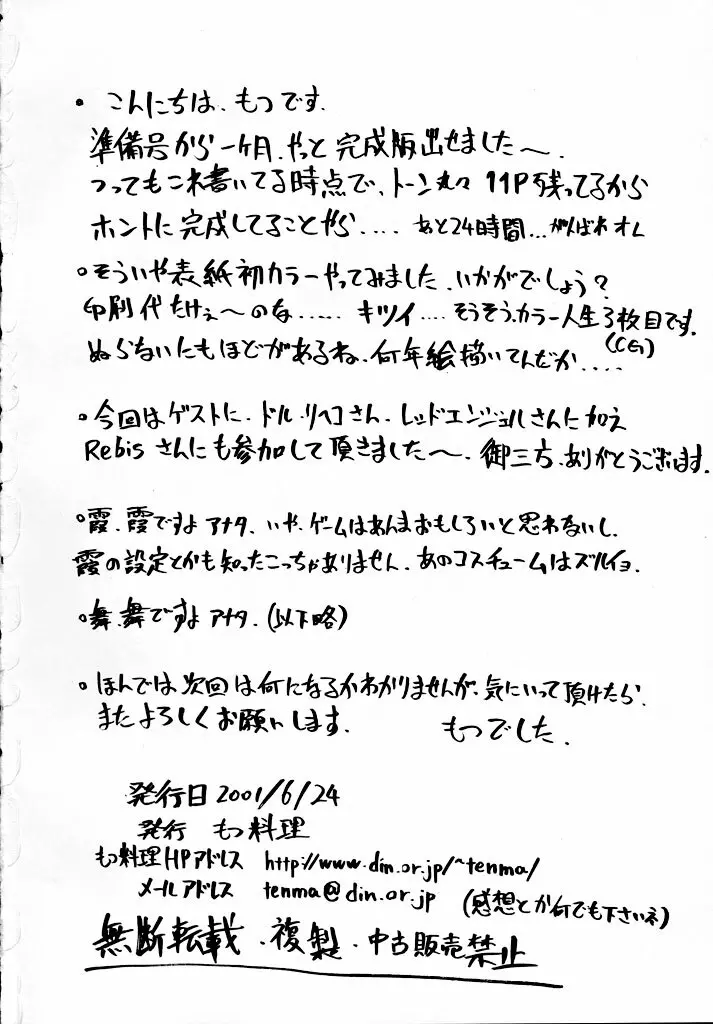 ・こんにちは、もつです.
準備号から一ヶ月、やっと完成版出せました〜.
つってもこれ書いてる時点で、トーン丸々11P残ってるから
ホントに完成してることやら.... あと24時間...がんばれオレ
・そういや表紙初カラーやってみました、いかがでしょう?
印刷代たけぇ〜のな...... キツイ.... そうそう、カラー人生3枚目です.
(CG)
ぬらないにもほどがあるね、何年絵描いてんだか....
・今回はゲストに、ドル・リヘコさん、レッドエンジェルさんに加え
Rebisさんにも参加して頂きました〜、御三方、ありがとうございます.
・霞、霞ですよアナタ、いや、ゲームはあんまおもしろいと思わないし、
霞の設定とかも知ったこっちゃありません、あのコスチュームはズルイヨ.
・舞、舞ですよアナタ.(以下略)
・ほんでは次回は何になるかわかりませんが、気にいって頂けたら、
またよろしくお願いします. もつでした.
発行日 2001/6/24
発行 もつ料理
もつ料理HPアドレス http://www.din.or.jp/~tenma/
メールアドレス tenma@din.or.jp (感想とか何でも下さいネ)
無断転載・複製・中古販売禁止